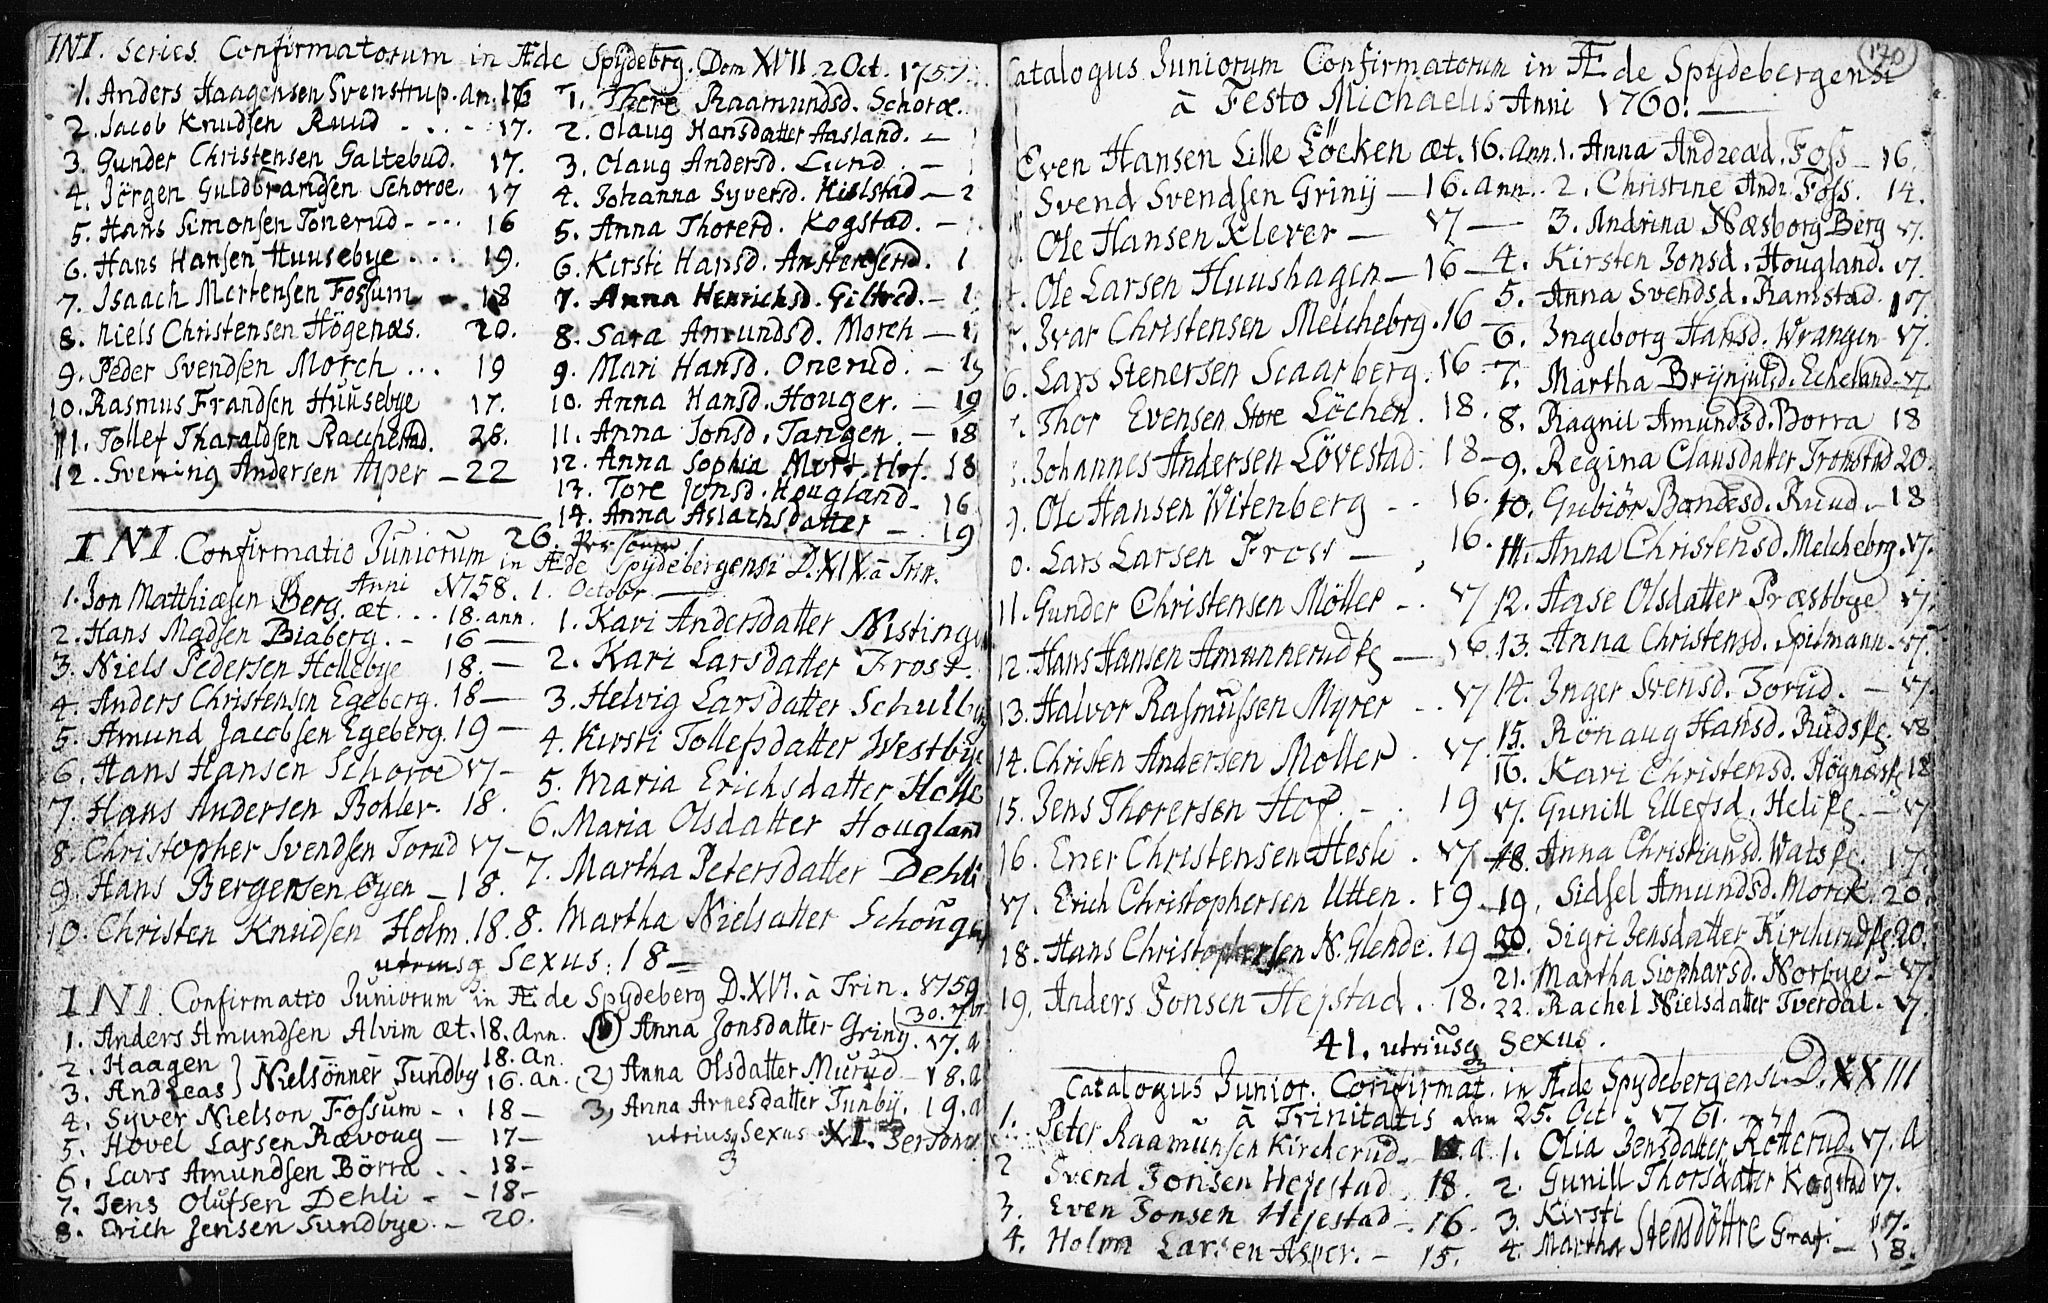 INI. Series Confirmatorum in Æde Spydebrg. Dom XVII 2 Oct. 1757.
1. Anders Haagensen Svenstrup. an. 16
2. Jacob Knudsen Ruud . . . - 17.
3. Gunder Christensen Galtebud. 17.
4. Jörgen Guldbrandsen Schoroe. 17
5. Hans Simonsen Tonerud - . . . 16
6. Hans Hansen Huusebye . . . 19.
7. Isaach Mortensen Fossum . . 18
8. Niels Christensen Högenæs. 20.
9. Peder Svendsen Morch . . . 19
10. Rasmus Frandsen Huusebye 17.
11. Tollef Tharaldsen Racchestad. 28.
12. Svening Andersen Asper - 22
1. There Raamundsd. Schoroe.
2. Olaug Hansdatter Aasland. -
3. Olaug Andersd. Lund. -
4. Johanna Syversd. Hielstad - 2
5. Anna Thorerd. Kogstad. -
6. Kirsti Hansd. 1
7. Anna Henrichsd. - 1
8. Sara Amundsd. Morch - 1
9. Mari Hansd. Onerud. - 19
10. Anna Hansd. Houger. - 19
11. Anna Jonsd. Tangen. - 18
12. Anna Sophia Hof. 18
13. Tore Jonsd. Hougland - 16
14. Anna Aslachsdatter - . 19
26. Persouer.
INI. Confirmatio Juniorum in Æde Spydebergensi D. XIX. à Trin.
Anni 1758. 1. Octobr -
1. Jon Matthiæsen Berg. æt . . . 18. ann.
2. Hans Madsen Biaberg. - 16 -
3. Niels Pedersen Hollebye 18. -
4. Anders Christensen Egeberg. 18 -
5. Amund Jacobsen Egeberg. 19 -
6. Hans Hansen Schoroe 17 -
7. Hans Andersen Bohler. 18.
8. Christopher Svendsen Torud 17 -
9. Hans Bergersen Öyen - 18.
10. Christen Knudsen Holm. 18.
1. Kari Andersdatter Nistingu
2. Kari Larsdatter Frost.
3. Helvig Larsdatter Schulb
4. Kirsti Tollefsdatter Westbye
5. Maria Erichsdatter Holle
6. Maria Olsdatter Hougland
7. Martha Petersdatter Dehli
8. Martha Nielsatter Schoug
utriusq Sexus: 18 -
INI Confirmatio Juniorum in Æde Spydeberg D. XVI. à Trin. 1759
30. 7br
1. Anders Amundsen Alvim æt. 18. Ann.
2. Haagen 18. An.
3. Andreas } Nielsönner Tundby 16. an.
4. Syver Nielson Fossum - . 18 -
5. Hovel Larsen Rævoug - 17 -
6. Lars Amundsen Börra . . 18 -
7. Jens Olufsen Dehli - - 18 -
8. Erich Jensen Sundbye. - 20.
1) Anna Jonsdatter Griny. 17. a
2) Anna Olsdatter Murud - 18. a
3) Anna Arnesdatter Tunbÿ. 19. a
utriusq Sexus XI. Person
170
Catalogus Juniorum Confirmatorum in Æde Spydebergensi
à Festo Michaelis Anni 1760. -
Even Hansen Lille Löcken æt. 16. Ann.
Svend Svendsen Grinÿ - 16. ann.
Ole Hansen Klever - 17 -
Ole Larsen Huushagen - 16 -
Ivar Christensen Melchebrg. 16 -
6. Lars Stenersen Scaarberg. 16 -
Thor Evensen Store Löchen. 18.
Johannes Andersen Lövestad. 18 -
9. Ole Hansen Witenberg - - 16.
0. Lars Larsen Frost - , 16.
11. Gunder Christensen Möller - . 17
12. Hans Hansen Amunnerudpl - 16.
13. Halvor Rasmussen Myrer - . 17
14. Christen Andersen Moller . 17.
15. Jens Thorersen Hof. - . 19
16. Ener Christensen Hesle . 17
17. Erich Christophersen Utten. 19
18. Hans Christophersen N. Glende. 19
19. Anders Jonsen Hejstad. . 18.
1. Anna Andreæd. Foss - 16.
2. Christine Andr. Foss. 14.
3. Andrina Næsborg Berg 17.
4. Kirsten Jonsd. Hougland. 17.
5. Anna Svendsd. Ramstad. 17.
6. Ingeborg Hansd. Wrangen 17.
7. Martha Brÿnjulsd. Echeland. 17.
8. Ragnil Amundsd. Borra 18
9. Regina Clausdatter Tronstad 20.
10. Gubiör Bondesd. Ruud. - 18
11. Anna Christensd. Melchebrg. 17.
12. Aase Olsdatter Præstbye 17.
13. Anna Christensd. Spilmann. 17.
14. Inger Svensd. Torud. - 17.
15. Rönaug Hansd. Rudspl. 18
16. Kari Christensd. Högnæspl 18
17. Gunill Ellefsd. Helipl. - 17
18. Anna Christiansd. Watspl. 17.
19. Sidsel Amundsd. Morck. 20.
20. Sigri Jensdatter Kircherudpl. 20.
21. Martha Siophærsd. Norbye - 17.
22. Rachel Nielsdatter Tverdal. 17.
41. utriusq Sexus.
Catalogus Junior. Confirmat. in Æde Spydebergensi. D. XXIII
à Trinitatis den 25. Oct. 1761.
1. Peter Raamunsen Kircherud. a.
2 Svend Jonsen Hejestad . 18.
3. Even Jonsen Hejestad - . 16.
4. Holm Larsen Asper. - 15.
1. Olia Jensdatter Rötterud. 17. a
2. Gunill Thorsdatter Kogstad 17.
3. Kirsti 17.
4. Martha Stensdöttre Graf. - 18.